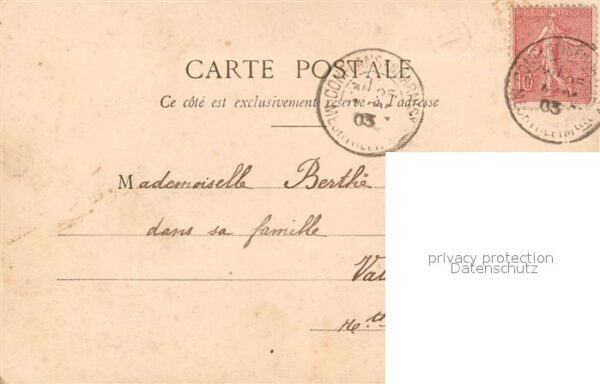 CARTE POSTALE
Ce côté est exclusivement réservé à l'adresse
Mademoiselle Berthe
dans sa famille
Va
privacy protection
Datenschutz
10
25
03